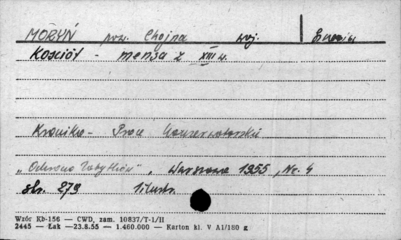 MORYŃ pow. Chojna woj.
Kościół - mensa z XIII w.
Kronika - Prace Konserwatorskie
"Ochrona Zabytków", Warszawa 1955, Nr. 4
str. 279 ilustr.
Wzór Kb-156 — CWD, zam. 10837/T-1/II
2445 — Łak —23.8.55 — 1.460.000 — Karton kl. V A1/180 g